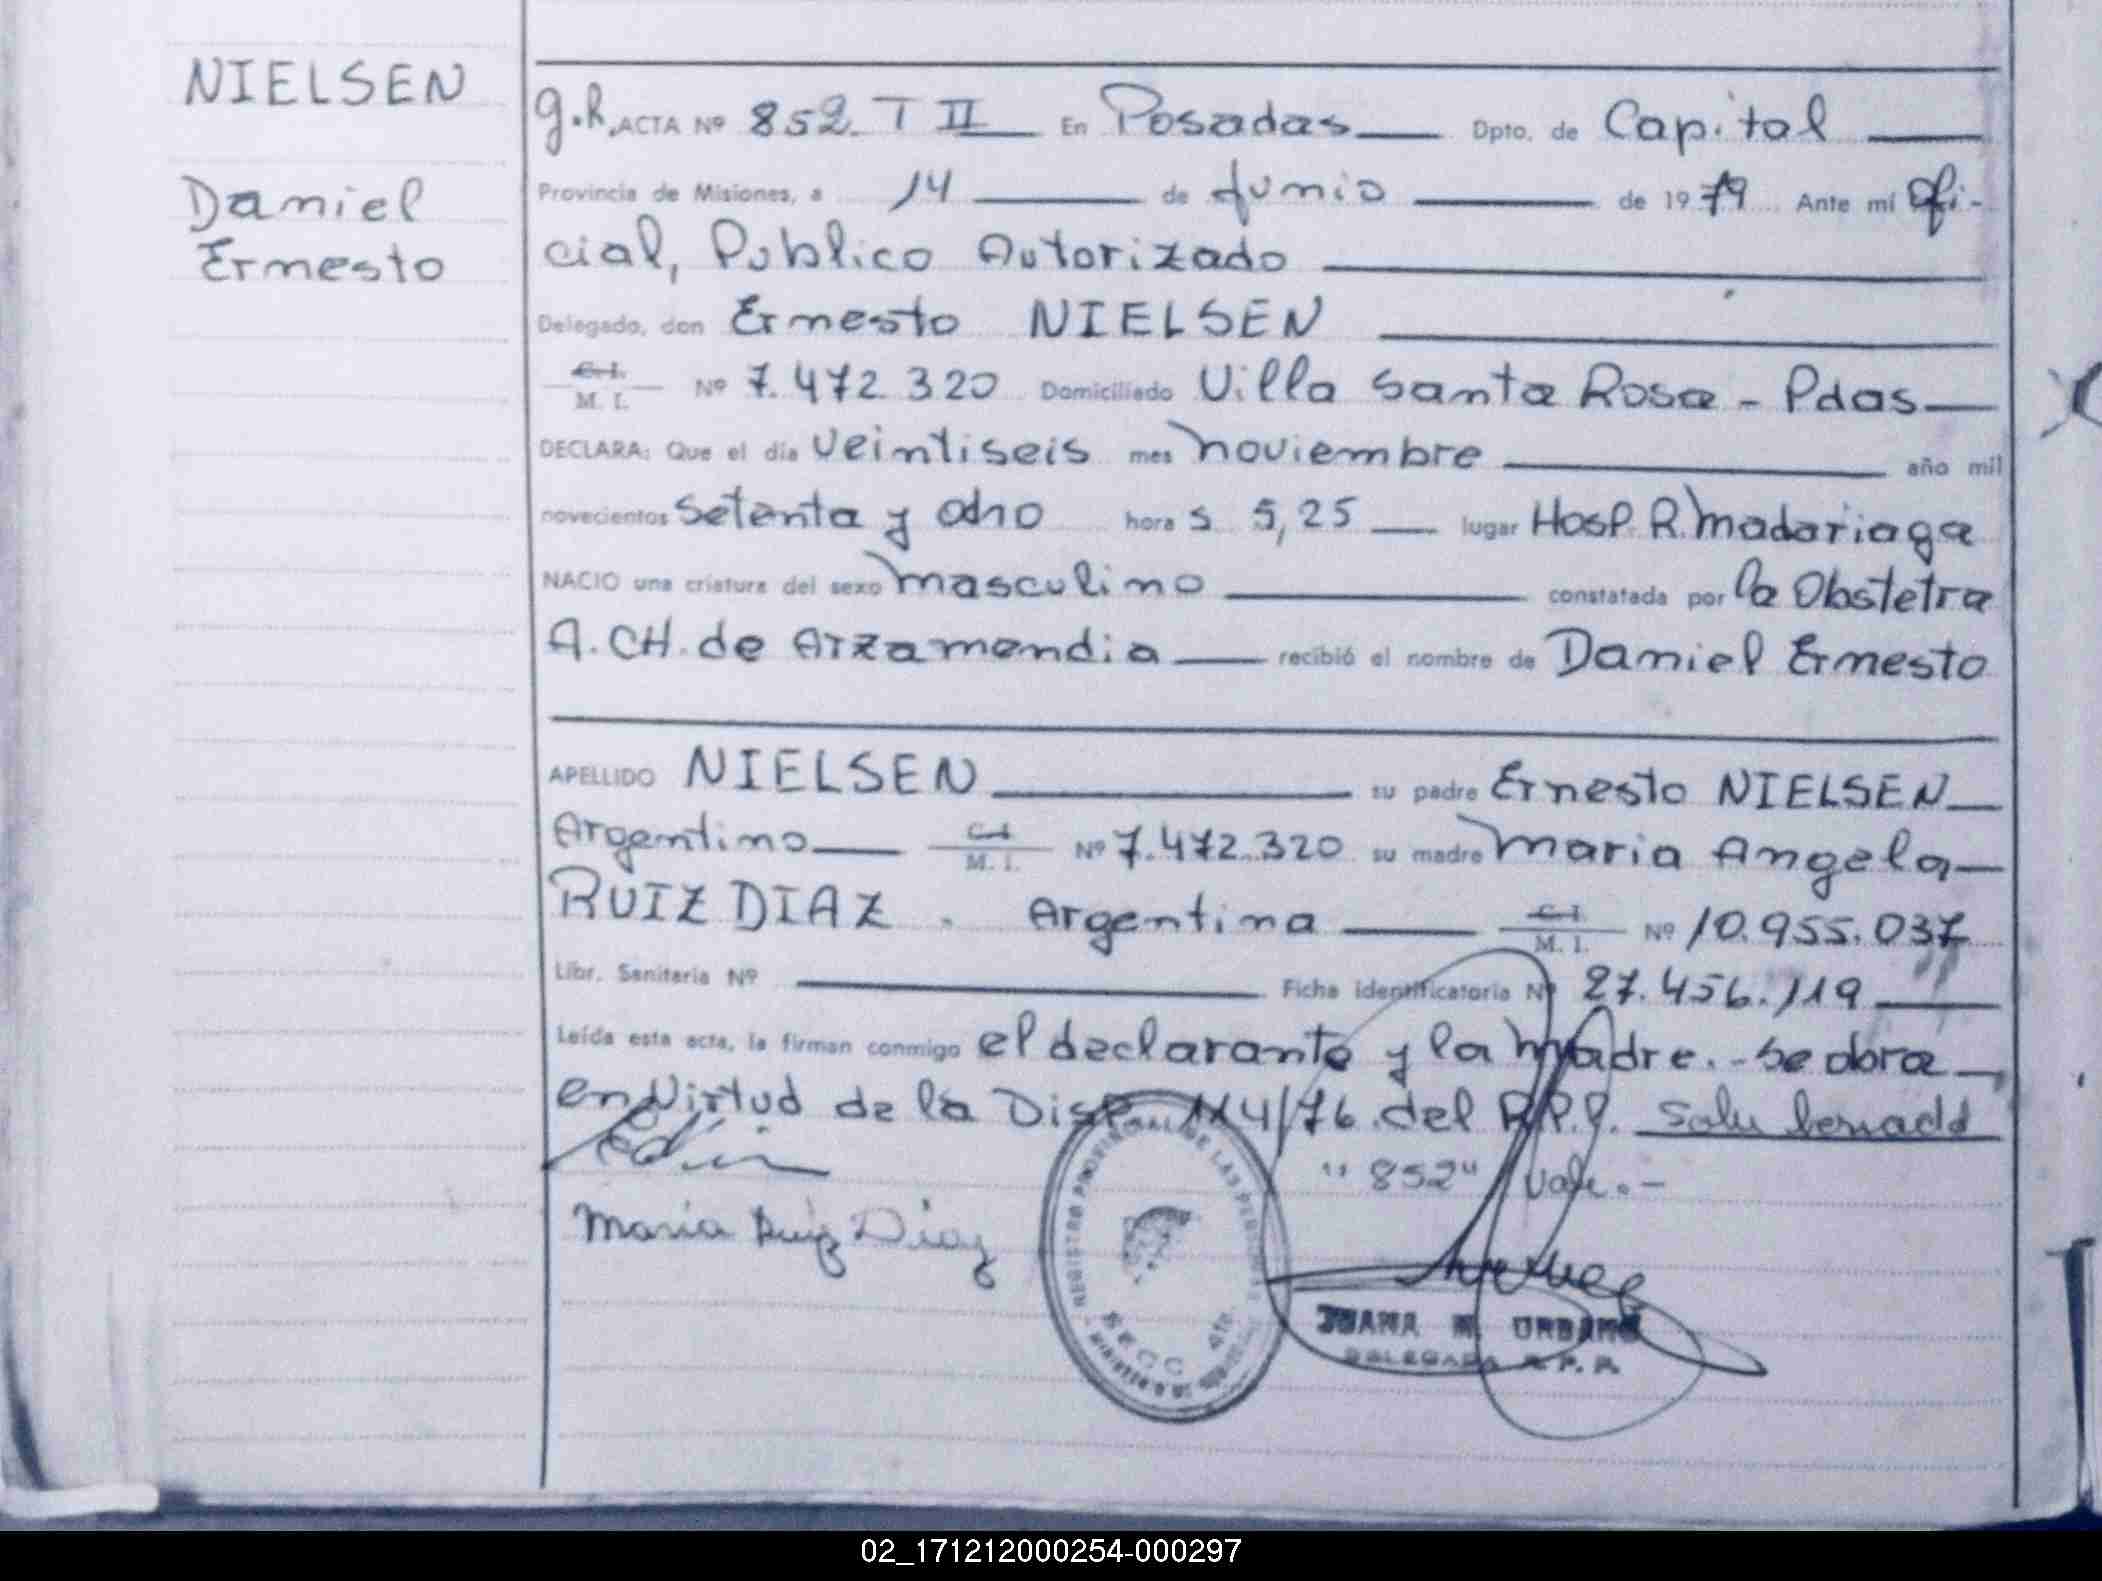 NIELSEN
Daniel
Ernesto
g.R. ACTA Nº 852 T II En Posadas Dpto. de Capital
Provincia de Misiones, a 14 de Junio de 1979 Ante mi Ofi-
cial, Publico Autorizado
Delegado, don Ernesto NIELSEN
C.I.
M. I. Nº 7.472.320 Domiciliado Villa Santa Rosa - Pdas
DECLARA: Que el día veintiseis mes noviembre año mil
novecientos setenta y ocho hora s 5,25 lugar Hosp. R. Madariaga
NACIO una criatura del sexo masculino constatada por la Obstetra
A. CH. de Arzamendia recibió el nombre de Daniel Ernesto
APELLIDO NIELSEN su padre Ernesto NIELSEN
Argentino C.I.
M. I. Nº 7.472.320 su madre Maria Angela
RUIZ DIAZ. Argentina C.I.
M. I. Nº 10.955.037
Libr. Sanitaria Nº Ficha identificatoria Nº 27.456.119
Leída esta acta, la firman conmigo el declarante y la madre.- Se obra
en virtud de la Disp. 114/76 del R.P.P.
"852" Vale.-
Maria Ruiz Diaz
REGISTRO PROVINCIAL DE LAS PERSONAS
SECC
JUANA URBANO
DELEGADA R.P.P.
02_171212000254-000297